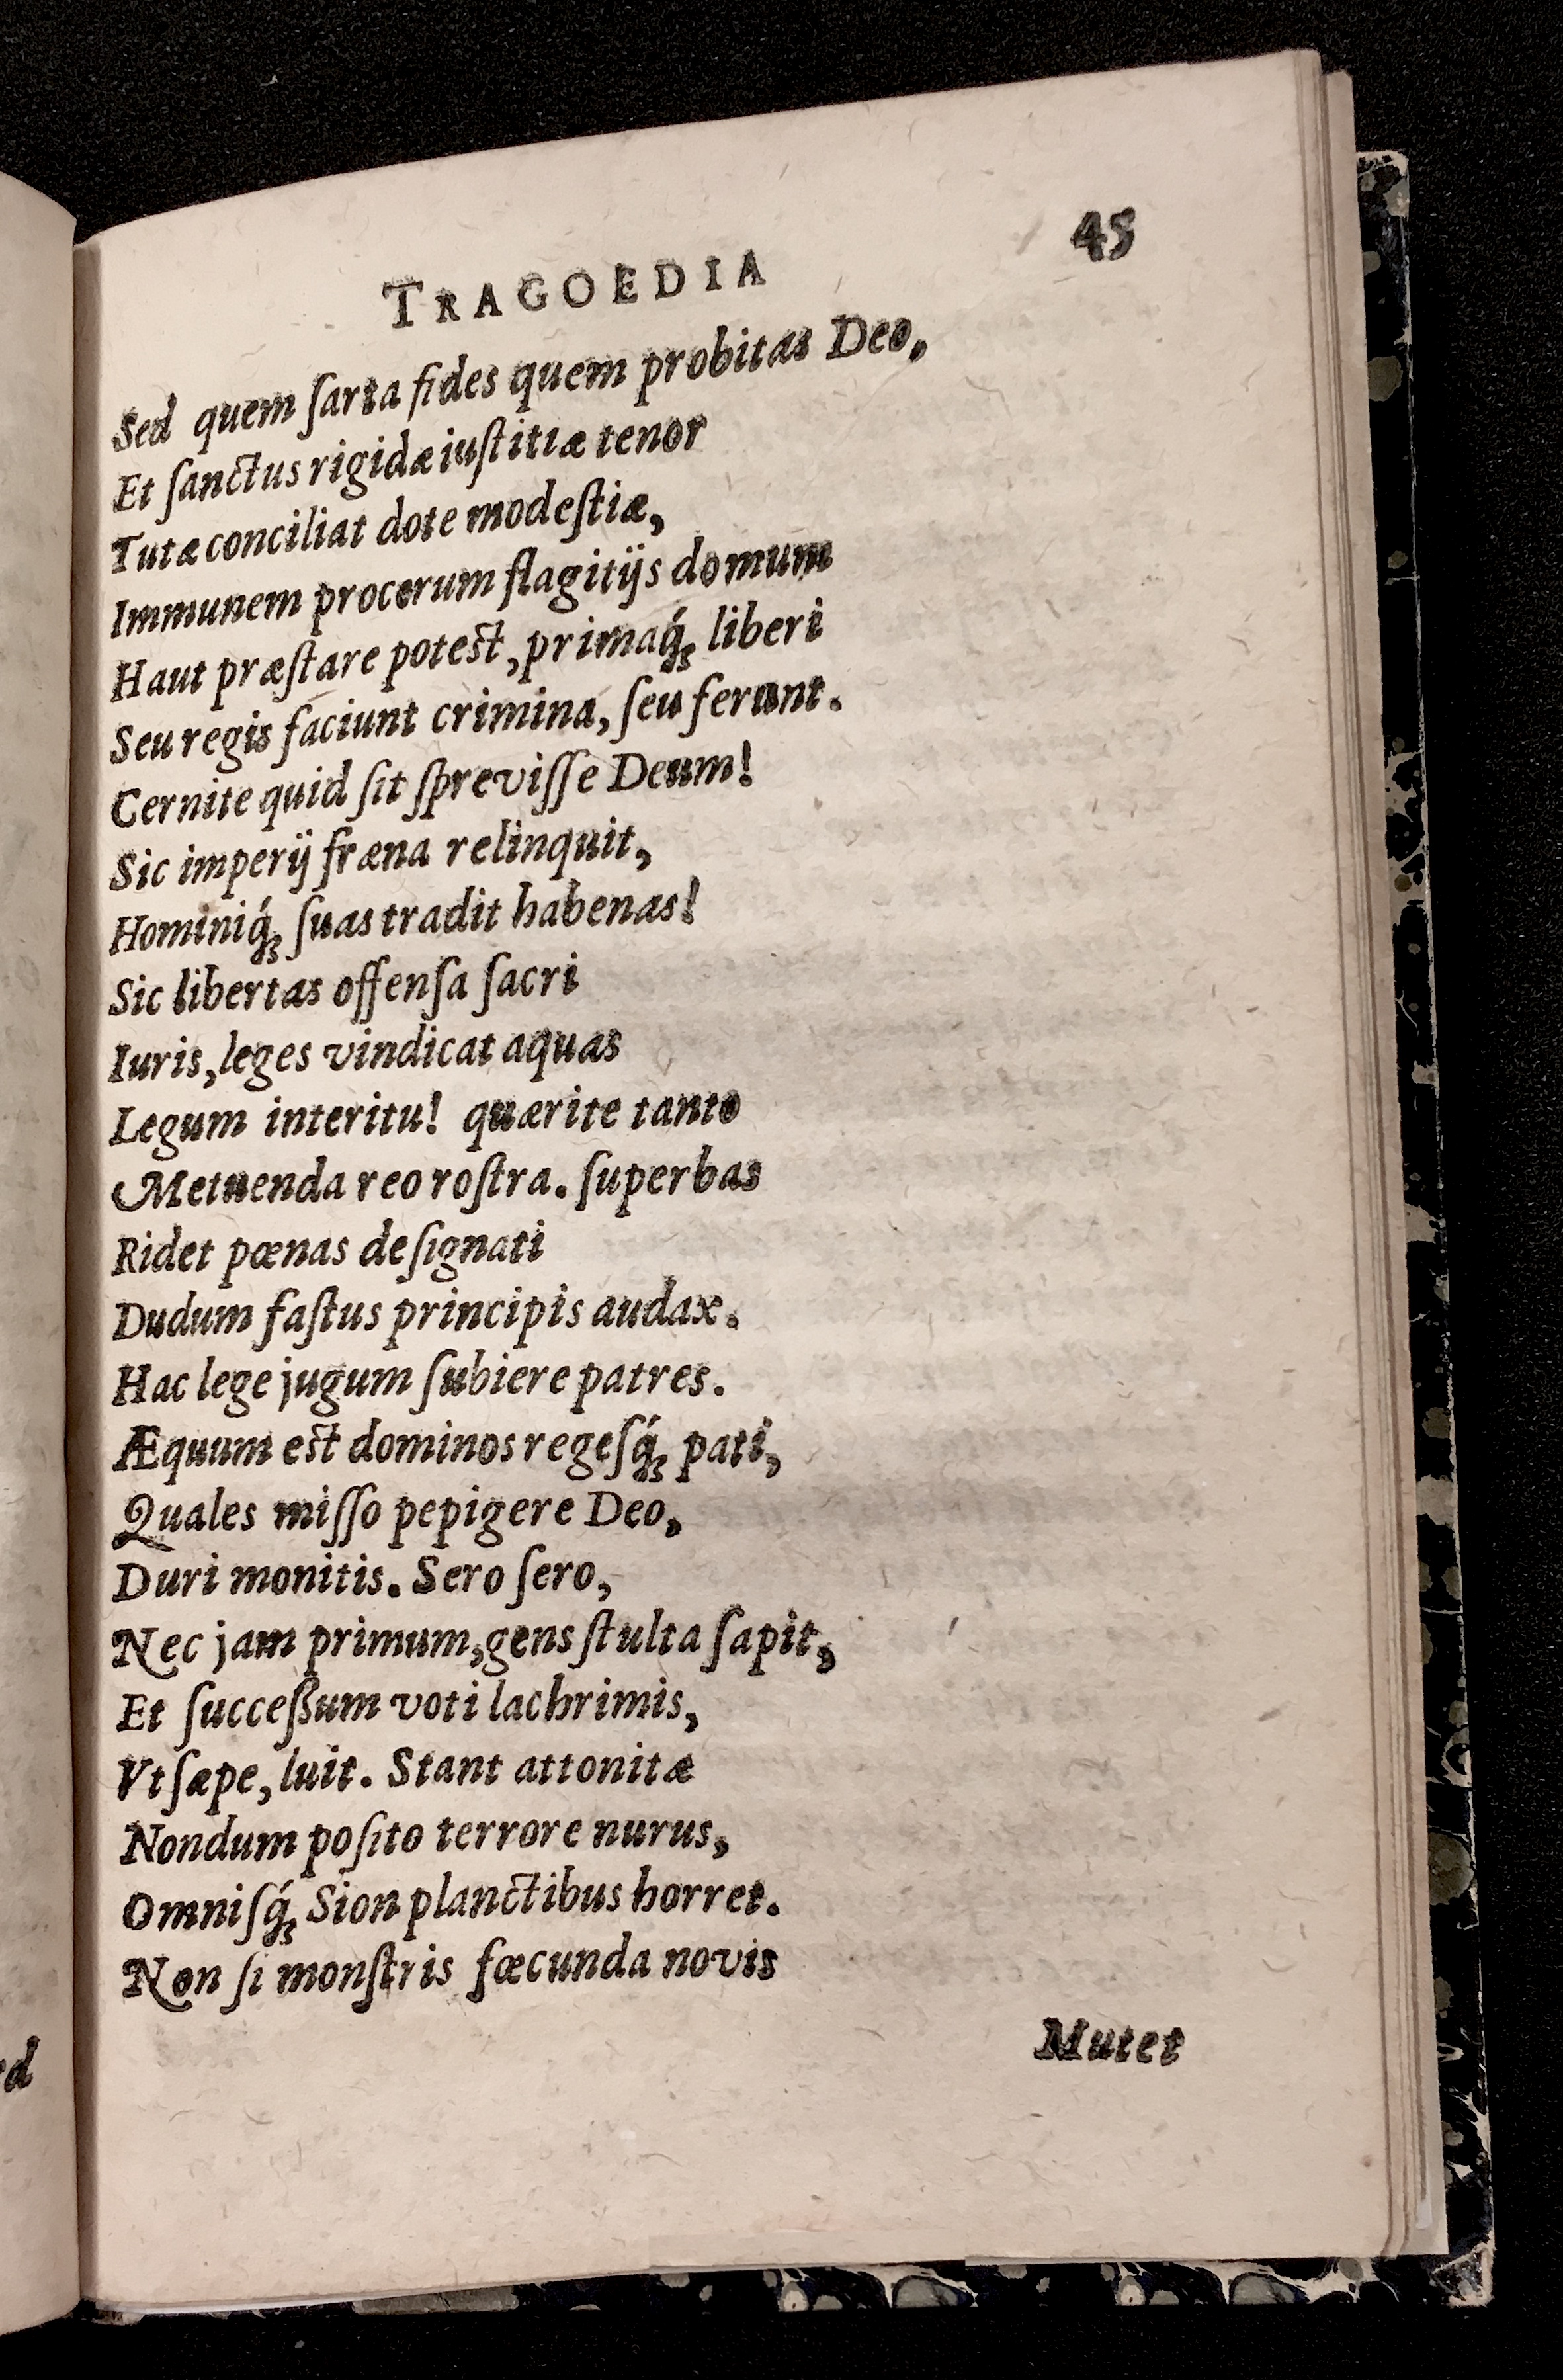 TRAGOEDIA 45
Sed quem ſarta fides quem probitas Deo,
Et ſanctus rigidæ iuſtitiæ tenor
Tutæ conciliat dote modeſtiæ,
Immunem procerum flagitijs domum
Haut præſtare poteſt, primaq́ꝫ liberi
Seu regis faciunt crimina, ſeu ferunt.
Cernite quid ſit ſpreviſſe Deum!
Sic imperij fræna relinquit,
Hominiq́ꝫ ſuas tradit habenas!
Sic libertas offenſa ſacri
Iuris, leges vindicat aquas
Legum interitu! quærite tanto
Metuenda reo roſtra. ſuperbas
Ridet pœnas deſignati
Dudum faſtus principis audax.
Hac lege jugum ſubiere patres.
Æquum eſt dominos regeſq́ꝫ pati,
Quales miſſo pepigere Deo,
Duri monitis. Sero ſero,
Nec jam primum, gens ſtulta ſapit,
Et ſucceßum voti lachrimis,
Vt ſæpe, luit. Stant attonitæ
Nondum poſito terrore nurus,
Omniſq́ꝫ Sion planctibus horret.
Non ſi monſtris fœcunda novis
Mutet
rd